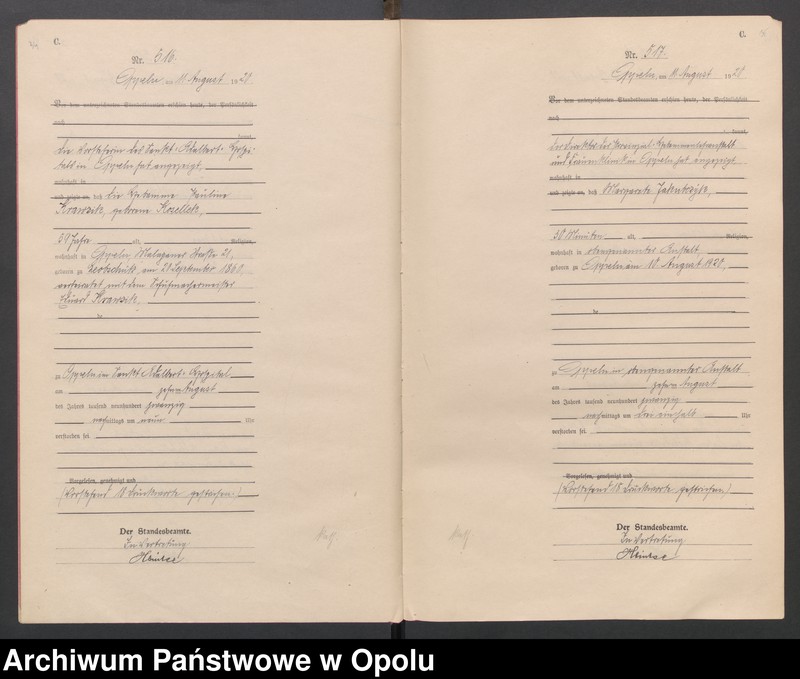 C.
Nr. 516.
Oppeln am 11. August 1920
Vor dem unterzeichneten Standesbeamten erschien heute, der Persönlichkeit
nach
kannt,
die Vorsteherin des Sankt-Adalbert-Hospi-
tals in Oppeln hat angezeigt,
wohnhaft in
und zeigte an, daß die Hebamme Pauline
geborene
59 Jahre alt, Religion,
wohnhaft in Oppeln, Malapaner Straße
geboren zu Leobschütz, am September 1860,
verheiratet mit dem Schuhmachermeister
de
zu Oppeln im Sankt-Adalbert-Hospital
am zehnten August
des Jahres tausend neunhundert zwanzig
nachmittags um neun Uhr
verstorben sei.
Vorgelesen, genehmigt und
(Vorstehend Druckworte gestrichen.)
Der Standesbeamte.
In Vertretung
C.
Nr. 517.
Oppeln am 11. August 1920
Vor dem unterzeichneten Standesbeamten erschien heute, der Persönlichkeit
nach
kannt,
der Direktor der Provinzial-Hebammenlehranstalt
und Frauenklinik in Oppeln hat angezeigt
wohnhaft in
und zeigte an, daß Margarete
30 Minuten alt, Religion,
wohnhaft in obengenannter Anstalt,
geboren zu Oppeln am 10. August 1920,
de
zu Oppeln in obengenannter Anstalt
am zehnten August
des Jahres tausend neunhundert zwanzig
nachmittags um Uhr
verstorben sei.
Vorgelesen, genehmigt und
(Vorstehend 18 Druckworte gestrichen.)
Der Standesbeamte.
In Vertretung
Archiwum Państwowe w Opolu